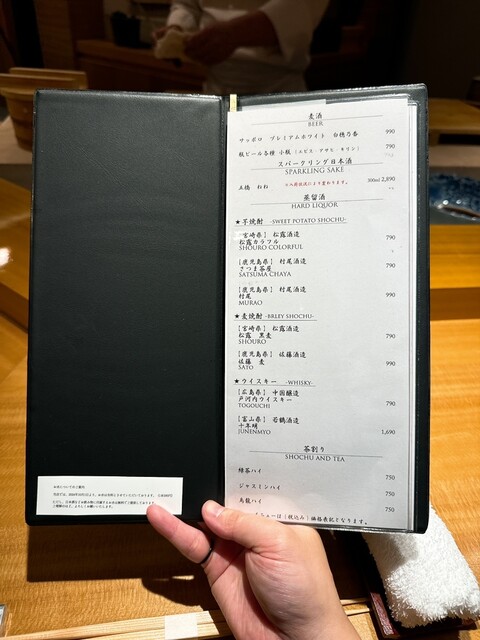 麦酒
BEER
サッポロ プレミアムホワイト 白穂乃香 990
瓶ビール各種 小瓶 (エビス・アサヒ・キリン) 790
スパークリング日本酒
SPARKLING SAKE
五橋 ねね 300ml 2,890
蒸留酒
HARD LIQUOR
★芋焼酎 -SWEET POTATO SHOCHU-
【宮崎県】 松露酒造
松露カラフル 790
SHOURO COLORFUL
【鹿児島県】 村尾酒造
さつま茶屋 790
SATSUMA CHAYA
【鹿児島県】 村尾酒造
村尾 990
MURAO
★麦焼酎 -BRLEY SHOCHU-
【宮崎県】 松露酒造
松露 黒麦 790
SHOURO
【鹿児島県】 佐藤酒造
佐藤 麦 990
SATO
★ウイスキー -WHISKY-
【広島県】 中国醸造
戸河内ウイスキー 790
TOGOUCHI
【富山県】 若鶴酒造
十年明 1,690
JUNENMYO
茶割り
SHOCHU AND TEA
緑茶ハイ 750
ジャスミンハイ 750
烏龍ハイ 750
は(税込み)価格表記となります。
お水についてのご案内